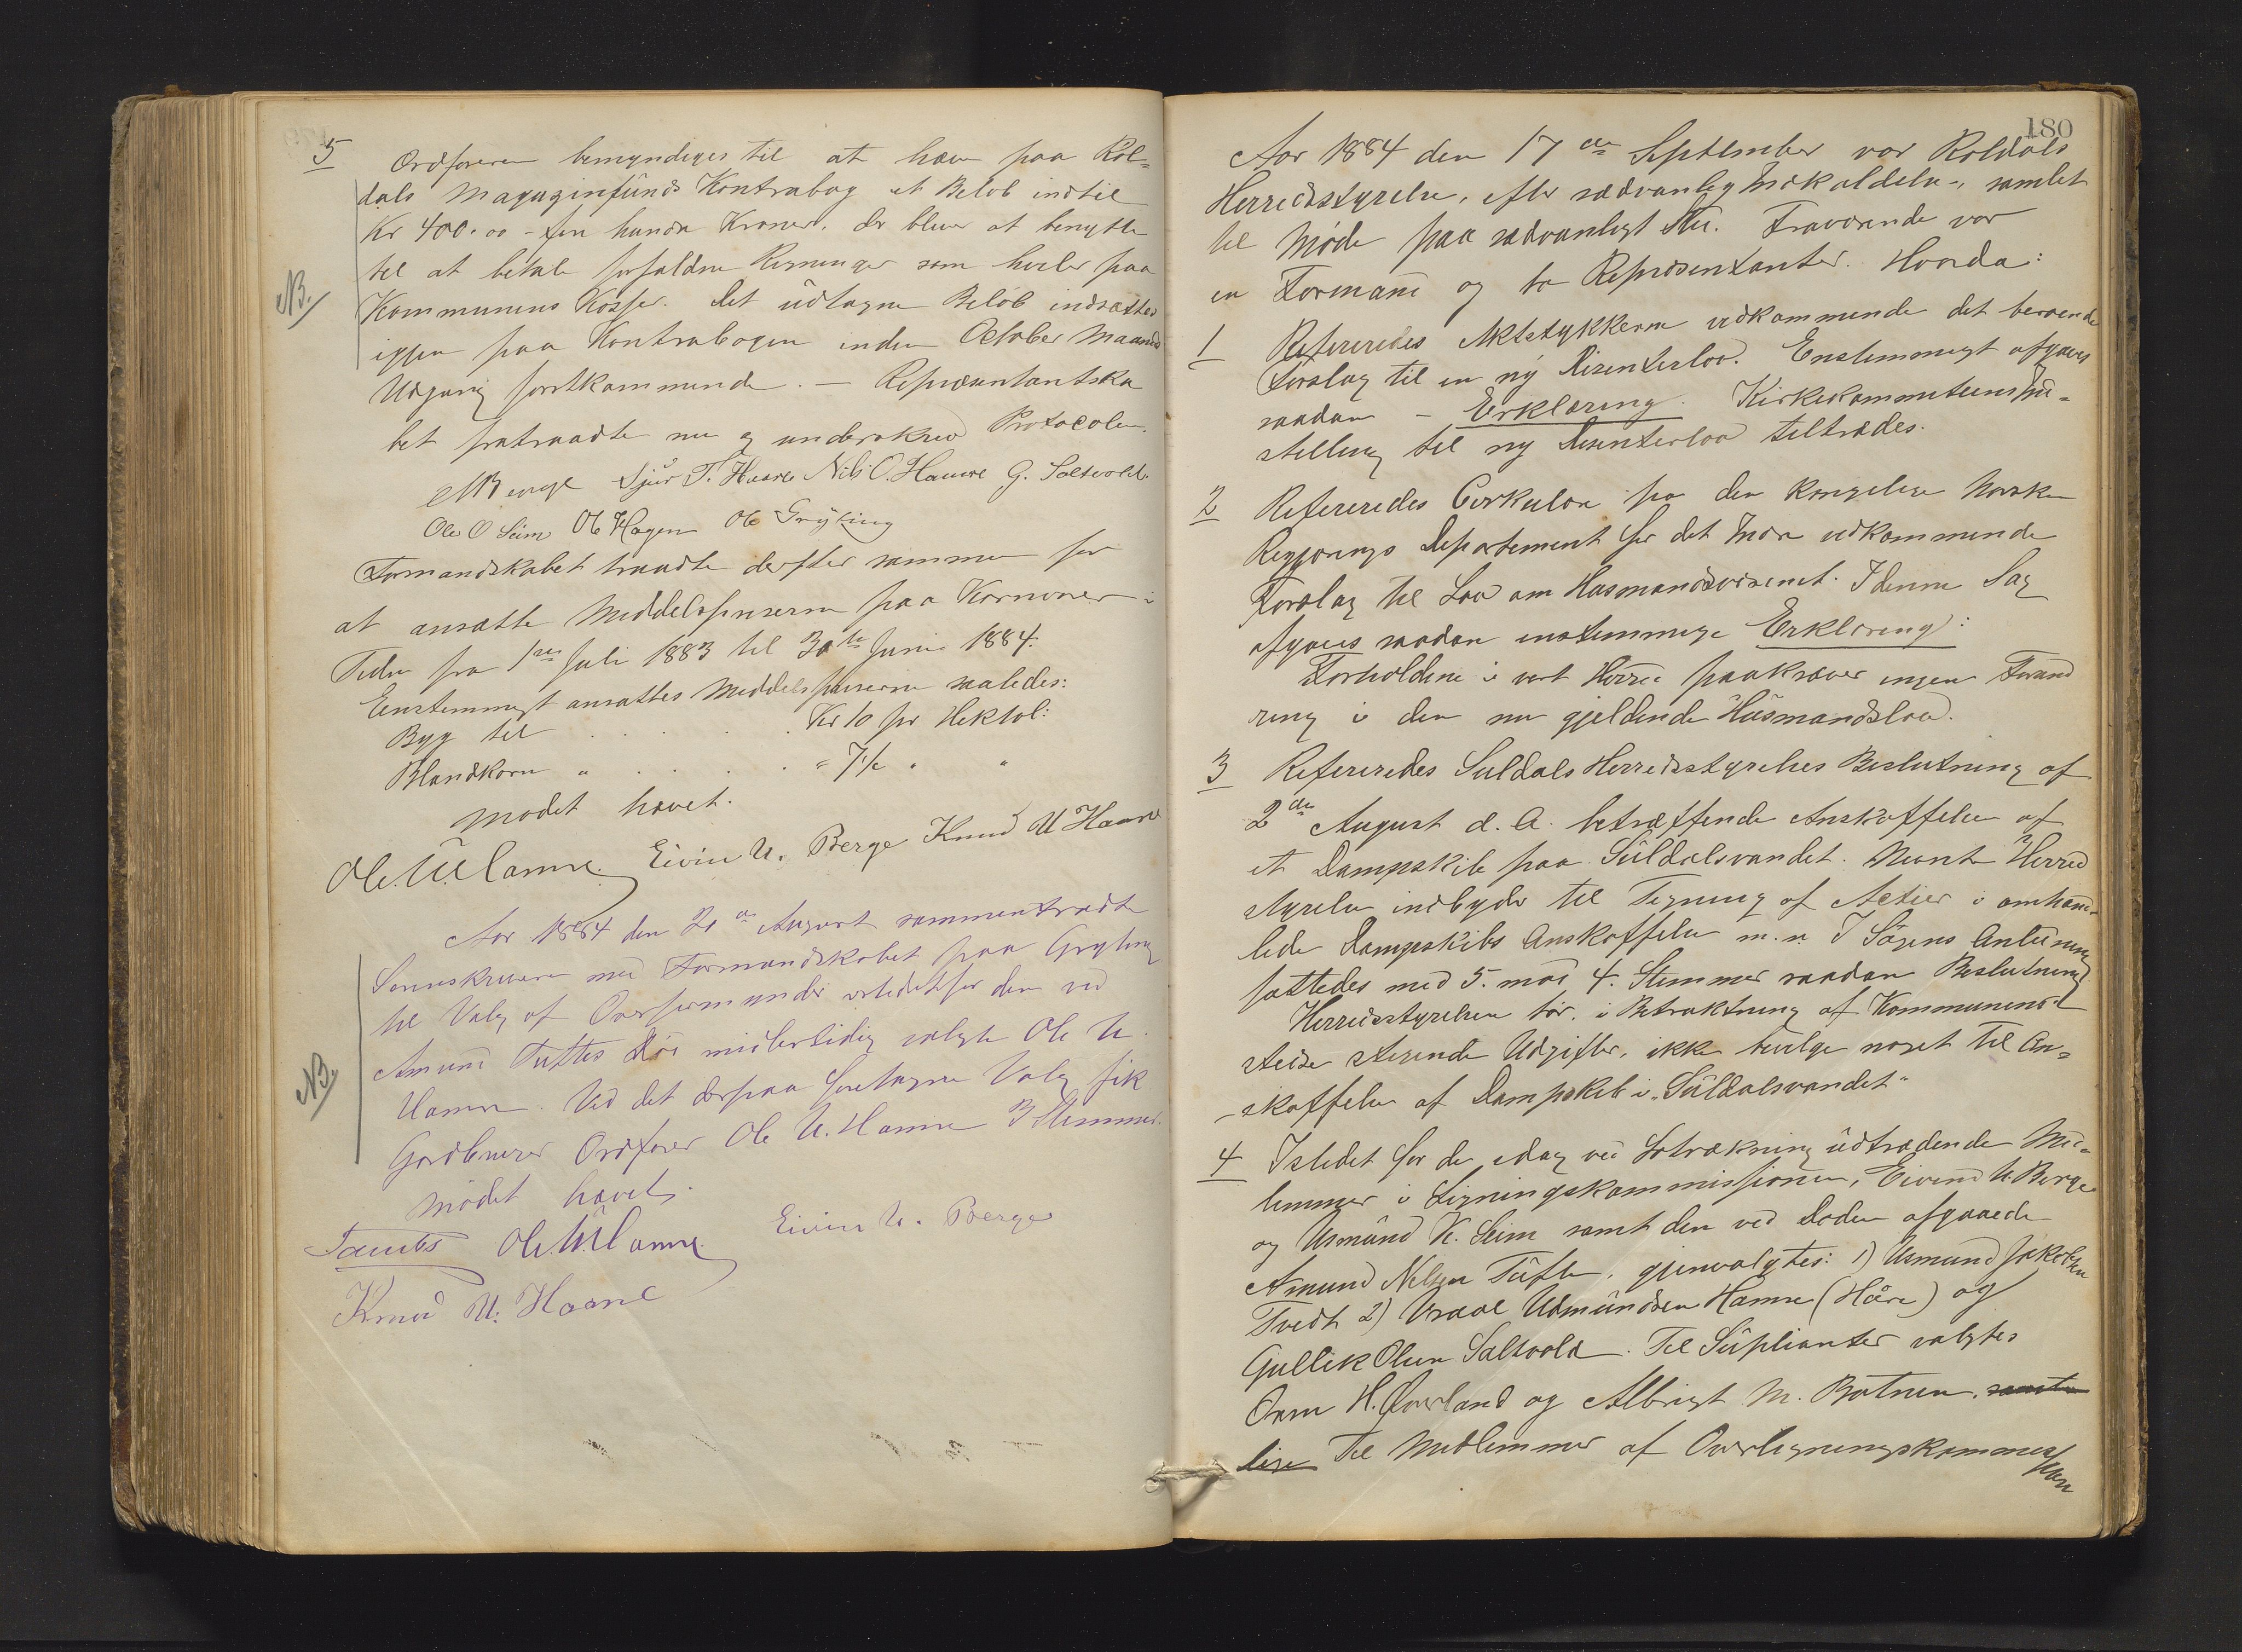 5 Ordføreren bemyndiges til at hæve paa Røl=
dals Magazinfunds Kontrabog et Beløb indtil
Kr 400.00 - fire hundre Kroner, der bliver at benytte
til at betale forfaldne Regninger som hviler paa
NB. Kommunens Kasse. Det udtagne Beløb indsættes
igjen paa Kontrabogen inden October Maaneds
Udgang førstkommende. — Repræsentantska
bet fratraadte nu og underskrev Protocolen.
Sjur T. Haare Nils O. Hamre G. Saltvold.
Ole O Seim Ole Hagen Ole Gryting
Formandskabet traadte derefter sammen for
at ansætte Middelspriserne paa Kornvarer i
Tiden fra 1ste Juli 1883 til 30te Juni 1884.
Eenstemmigt ansattes Middelspriserne saaledes:
Byg til . . . . . Kr 10 pr Hektol:
Blandkorn " . . . . " 7½ " "
Mødet hævet.
Ole U. Hamre. Eivin U. Berge Knud U Haare
Aar 1884 den 21de August sammentraadte
Sorenskriveren med Formandskabet paa Gryting
til Valg af Overformynder istedetfor den ved
Amund Tuftes Død midlertidig valgte Ole U.
NB. Hamre. Ved det derpaa foretagne Valg fik
Gardbruger Ordfører Ole U. Hamre 3 Stemmer.
Mødet hævet.
Ole U. Hamre. Eivin U. Berge
Knud U. Haare
180
Aar 1884 den 17de September var Røldals
Herredsstyrelse, efter sædvanlig Indkaldelse, samlet
til Møde paa sædvanligt Sted. Fraværende var
en Formand og to Repræsentanter. Hvorda:
1 Refereredes Aktstykkerne vedkommende det beroende
Forslag til en ny Disenterlov. Enstemmigt afgaves
saadan – Erklæring. Kirkekommiteens Ind=
stilling til ny Disenterlov tiltrædes.
2 Refereredes Cirkulære fra den Kongelige Norske
Regjerings Departement for det Indre vedkommende
Forslag til Lov om Husmandsvæsenet. I denne Sag
afgaves saadan enstemmige Erklæring:
Forholdene i vort Herred paakræver ingen Foränd
ring i den nu gjeldende Husmandslov.
3 Refereredes Suldals Herredsstyrelses Beslutning af
2den August d. A. betræffende Anskaffelse af
et Dampskib paa Suldalsvandet. Nævnte Herred
styrelse indbyder til Tegning af Actier i omhand-
lede Dampskibs Anskaffelse m.v. I Sagens Anledning
fattedes med 5. mod 4. Stemmer saadan Beslutning
Herredsstyrelsen tør, i Betraktning af Kommunens
stedse stigende Udgifter, ikke bevilge noget til An=
skaffelse af Dampskib i "Suldalsvandet"
4 Istedet for de idag ved Lotrækning udtrædende Med-
lemmer i Ligningskommissionen, Eivind U. Berge
og Usmund K. Seim samt den ved Døden afgaaede
Amund Nilsen Tufte, gjenvalgtes: 1) Usmund Jakobsen
Tvedt 2) Vraal Usmundsen Hamre (Håre) og
Gullik Olsen Saltvold. Til Suplianter valgtes
Orm H. Øverland og Albrigt M. Botnen, samt
lige Til Medlemmer af Overligningskommission